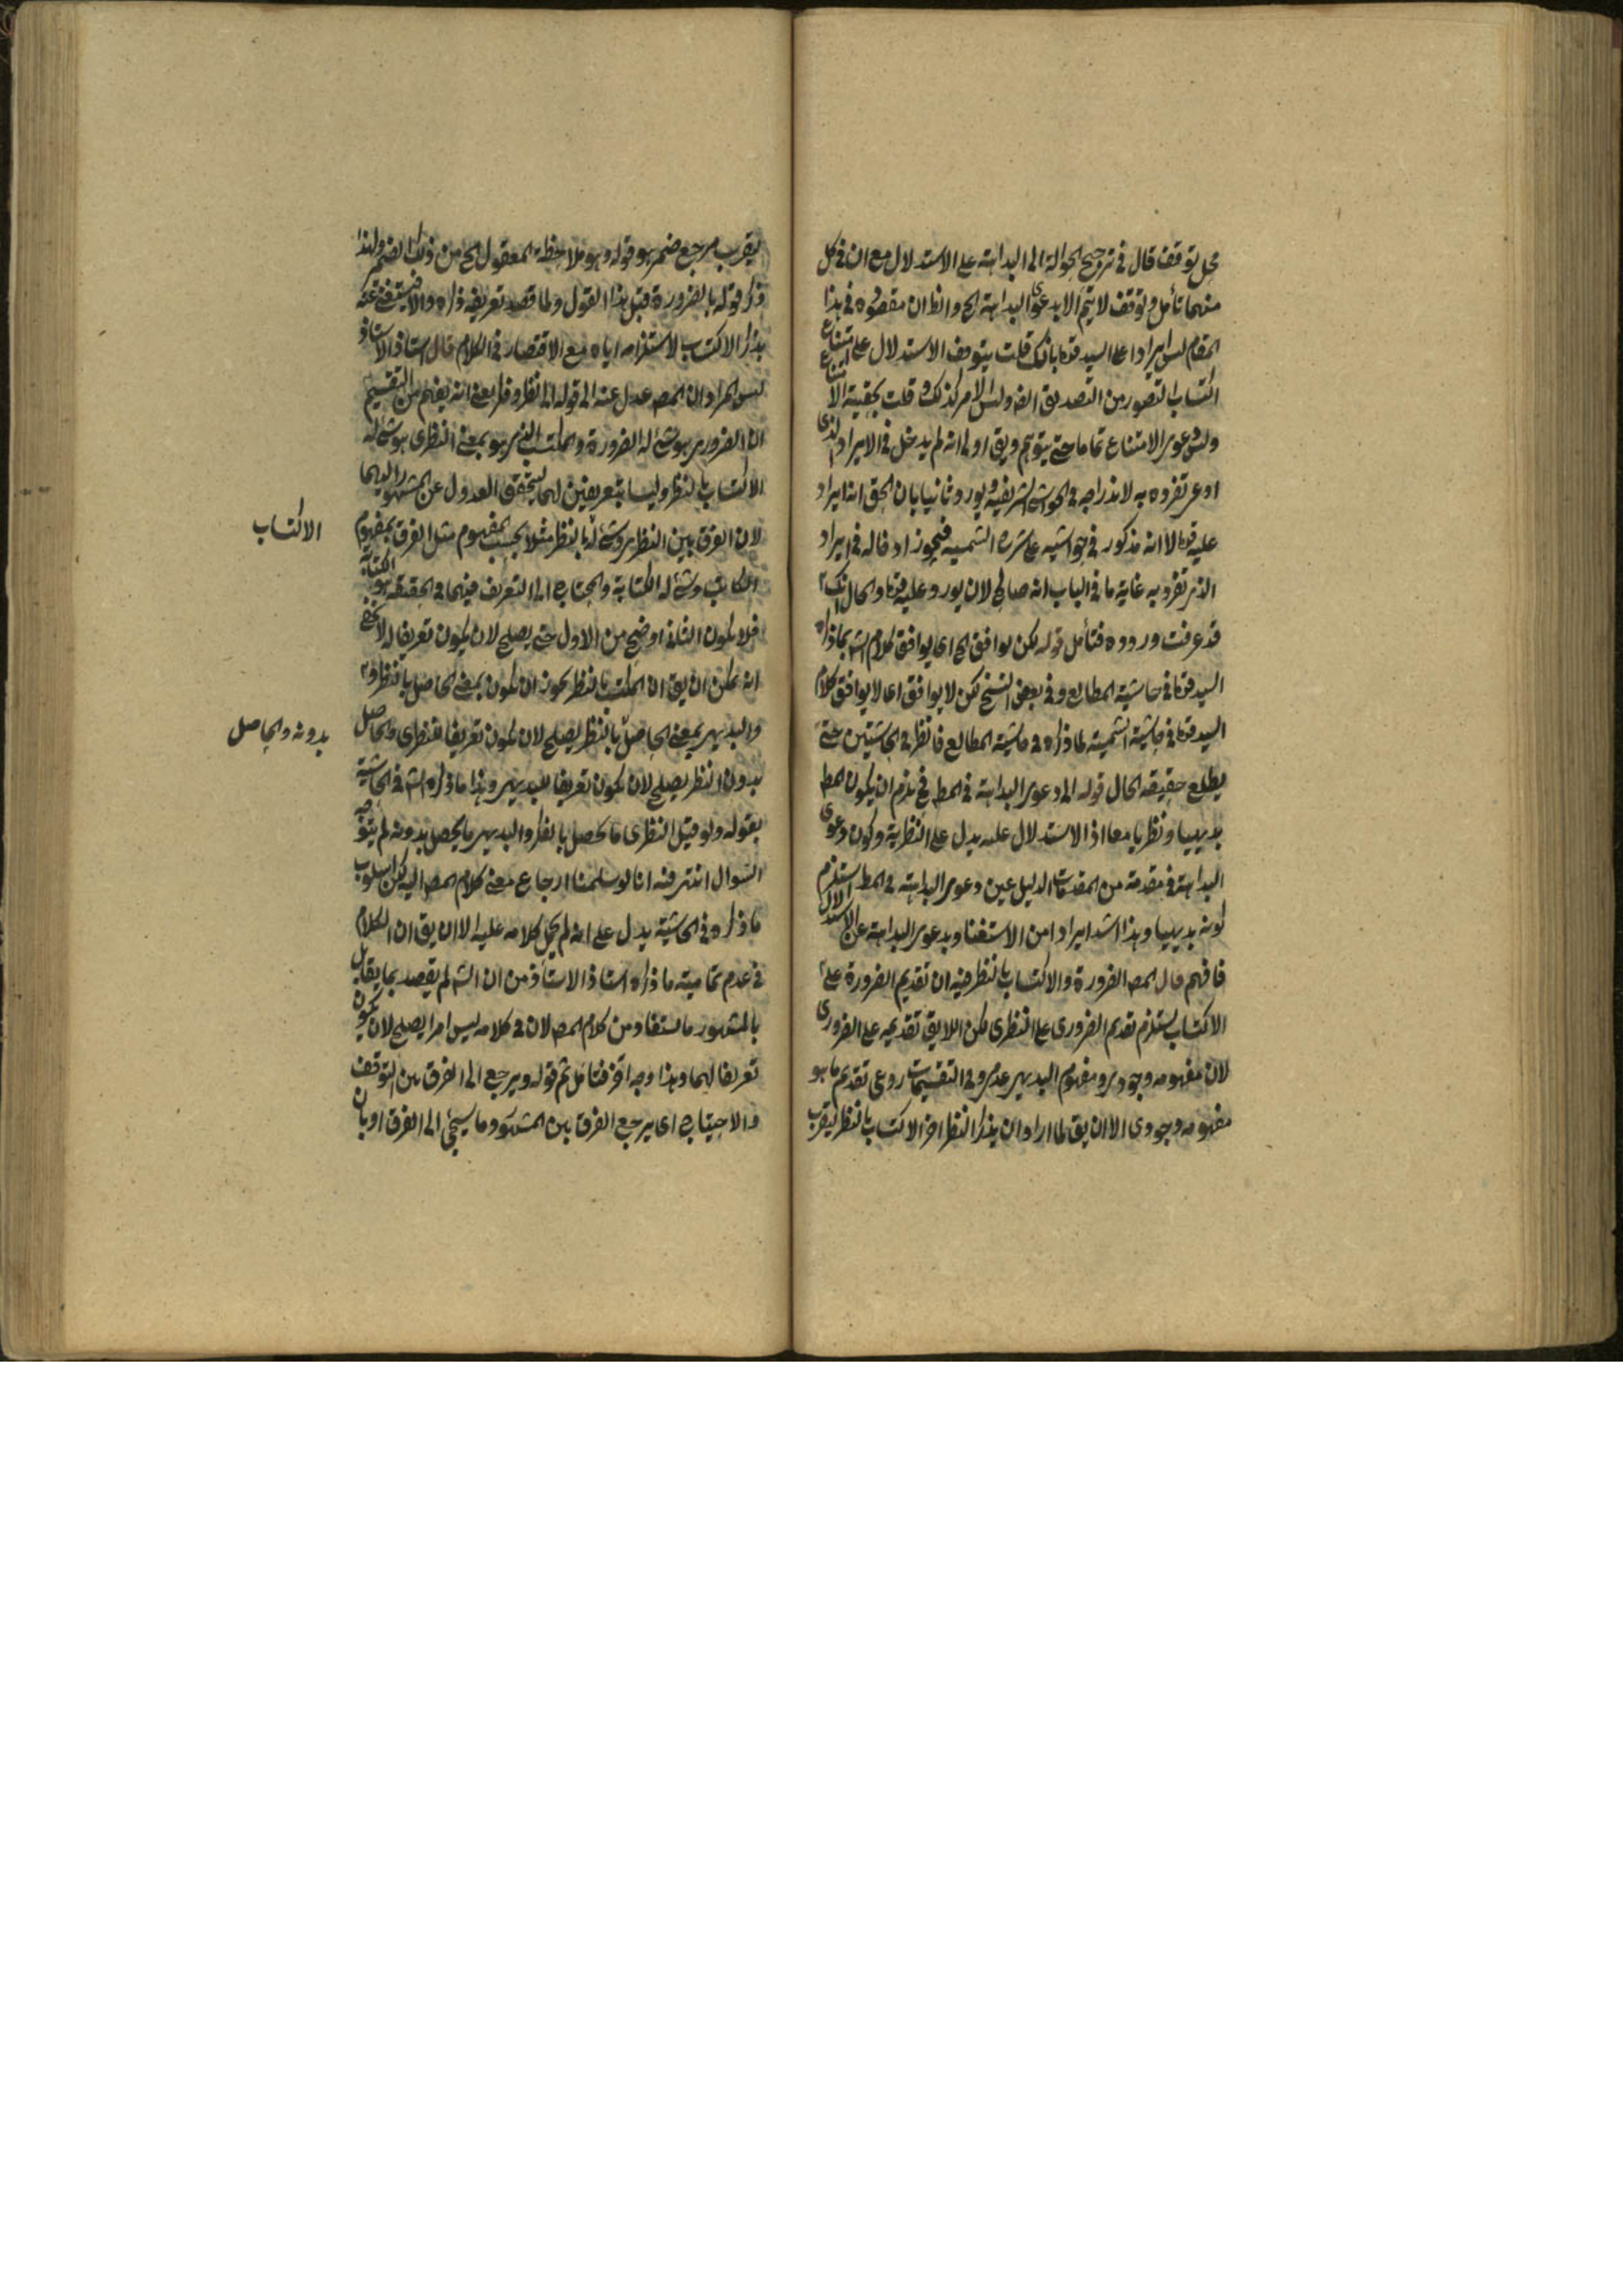 محل توقف قال في ترجيح الحوالة الى البداهة على الاستدلال مع ان في كل
منهما تأمل وتوقف لا يتم الا بدعوى البداهة الخ والظ ان مقصوده في هذا
المقام ليس ايرادا على السيد قده بانك قلت يتوقف الاستدلال على امتناع
اكتساب التصور من التصديق ايضا وليس الامر كذلك و قلت بحقية الامتناع
ودعوى الامتناع تماما حتى يتوهم ويق اولا انه لم يدخل في الايراد الذي
ادعى تفرده به لاندراجه في الحواشي الشريفية ويورد ثانيا بان الحق انه ايراد
عليه قده الا انه مذكور في حواشيه على شرح الشمسية فيجوز اد قاله في ايراد
الذي تفرد به غاية ما في الباب انه صالح لان يورد عليه قده والحال انك
قد عرفت وروده فتأمل قوله لكن يوافق الخ اى يوافق كلام الش بما ذكره
السيد قده في حاشية المطالع وفي بعض النسخ لكن لا يوافق اى لا يوافق كلام
السيد قده في حاشية الشمسية لما ذكره في حاشية المطالع فانظر في الحاشيتين حتى
يطلع حقيقة الحال قوله الى دعوى البداهة في المط فح يلزم ان يكون المط
بديهيا ونظريا معا اذ الاستدلال عليه يدل على النظرية وكون دعوى
البداهة في مقدمة من المقدمات الدليل عين دعوى البداهة في المط يستلزم
كونه بديهيا وهذا اشد ايرادا من الاستغناء بدعوى البداهة عن الاستدلال
فافهم قال المص الضرورة والاكتساب بالنظر فيه ان تقديم الضرورة على
الاكتساب يستلزم تقديم الضروري على النظري لكن اللايق تقديمه على الضروري
لان مفهومه وجودي ومفهوم البديهي عدمي وفي التقسيمات روعي تقديم ما هو
مفهومه وجودي الا ان يق لما اراد ان يذكر النظر اخر الاكتساب بالنظر ليقرب
ليقرب مرجع ضمير هو قوله وهو ملاحظة المعقول الخ من ذلك الضمير ولهذا
ذكر قوله بالضرورة قبل هذا القول ولما قصد تعريفه ذكره والا فيستغني عنه
بذكر الاكتساب لاستلزامه اياه مع الاقتصار في الكلام قال استاذ الاستاذ
ليس المراد ان المص عدل عنه الى قوله الى نظر وفكر يعني انه يفهم من التقسيم
ان الضروري هو شئ له الضرورة والمكتسب الذي هو بمعنى النظري هو شئ له
الاكتساب بالنظر وليسا بتعريفين لهما ليتحقق العدول عن المشهور اليهما
لان الفرق بين النظري وشئ له بالنظر مثلا بحسب المفهوم مثل الفرق بمفهوم
الاكتساب
الكاتب وشئ له الكتابة والمحتاج الى التعريف فيهما في الحقيقة هو الكتابة
فلا يكون الثاني اوضح من الاول حتى يصلح لان يكون تعريفا له لا يخفى
انه يمكن ان يق ان المكتسب بالنظر يجوز ان يكون بمعنى الحاصل بالنظر و
والبديهي بمعنى الحاصل بالنظر يصلح لان يكون تعريفا للنظري والحاصل
بدونه والحاصل
بدون النظر يصلح لان يكون تعريفا للبديهي وهذا ما ذكره الش في الحاشية
بقوله ولو قيل النظري ما يحصل بالفكر والبديهي ما يحصل بدونه لم يتوجه
السوال انتهى فيه انا لو سلمنا ارجاع معنى كلام المص اليه لكن اسلوب
ما ذكره في الحاشية يدل على انه لم يحمل كلامه عليه الا ان يق ان الكلام
في عدم تمامية ما ذكره استاذ الاستاذ من ان الش لم يقصد بما يقابل
بالمشهور ما يستفاد من كلام المص لان في كلامه ليس امرا يصلح لان يكون
تعريفا لهما وهذا وجه اخر فتأمل ثم قوله ويرجع الى الفرق بين التوقف
والاحتياج اى يرجع الفرق بين المشهور وما سيجئ الى الفرق او بان